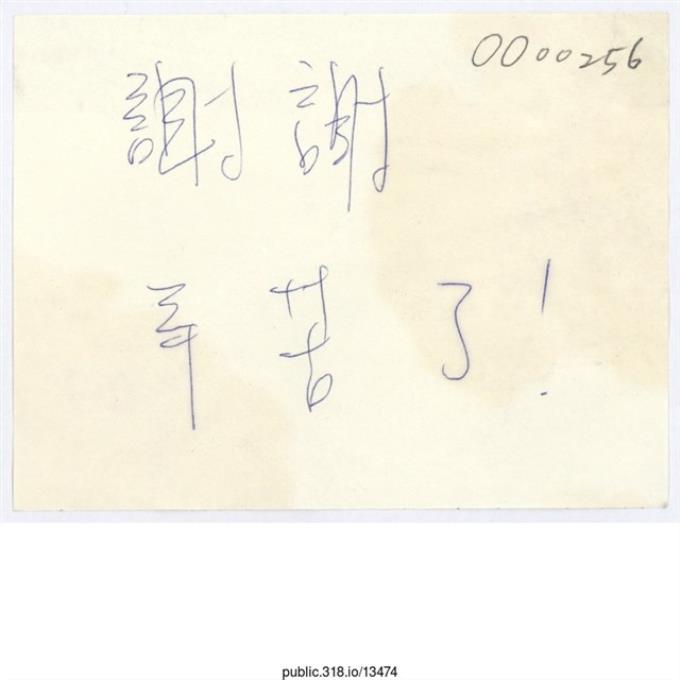 0000256
謝謝
辛苦了!
public.318.io/13474